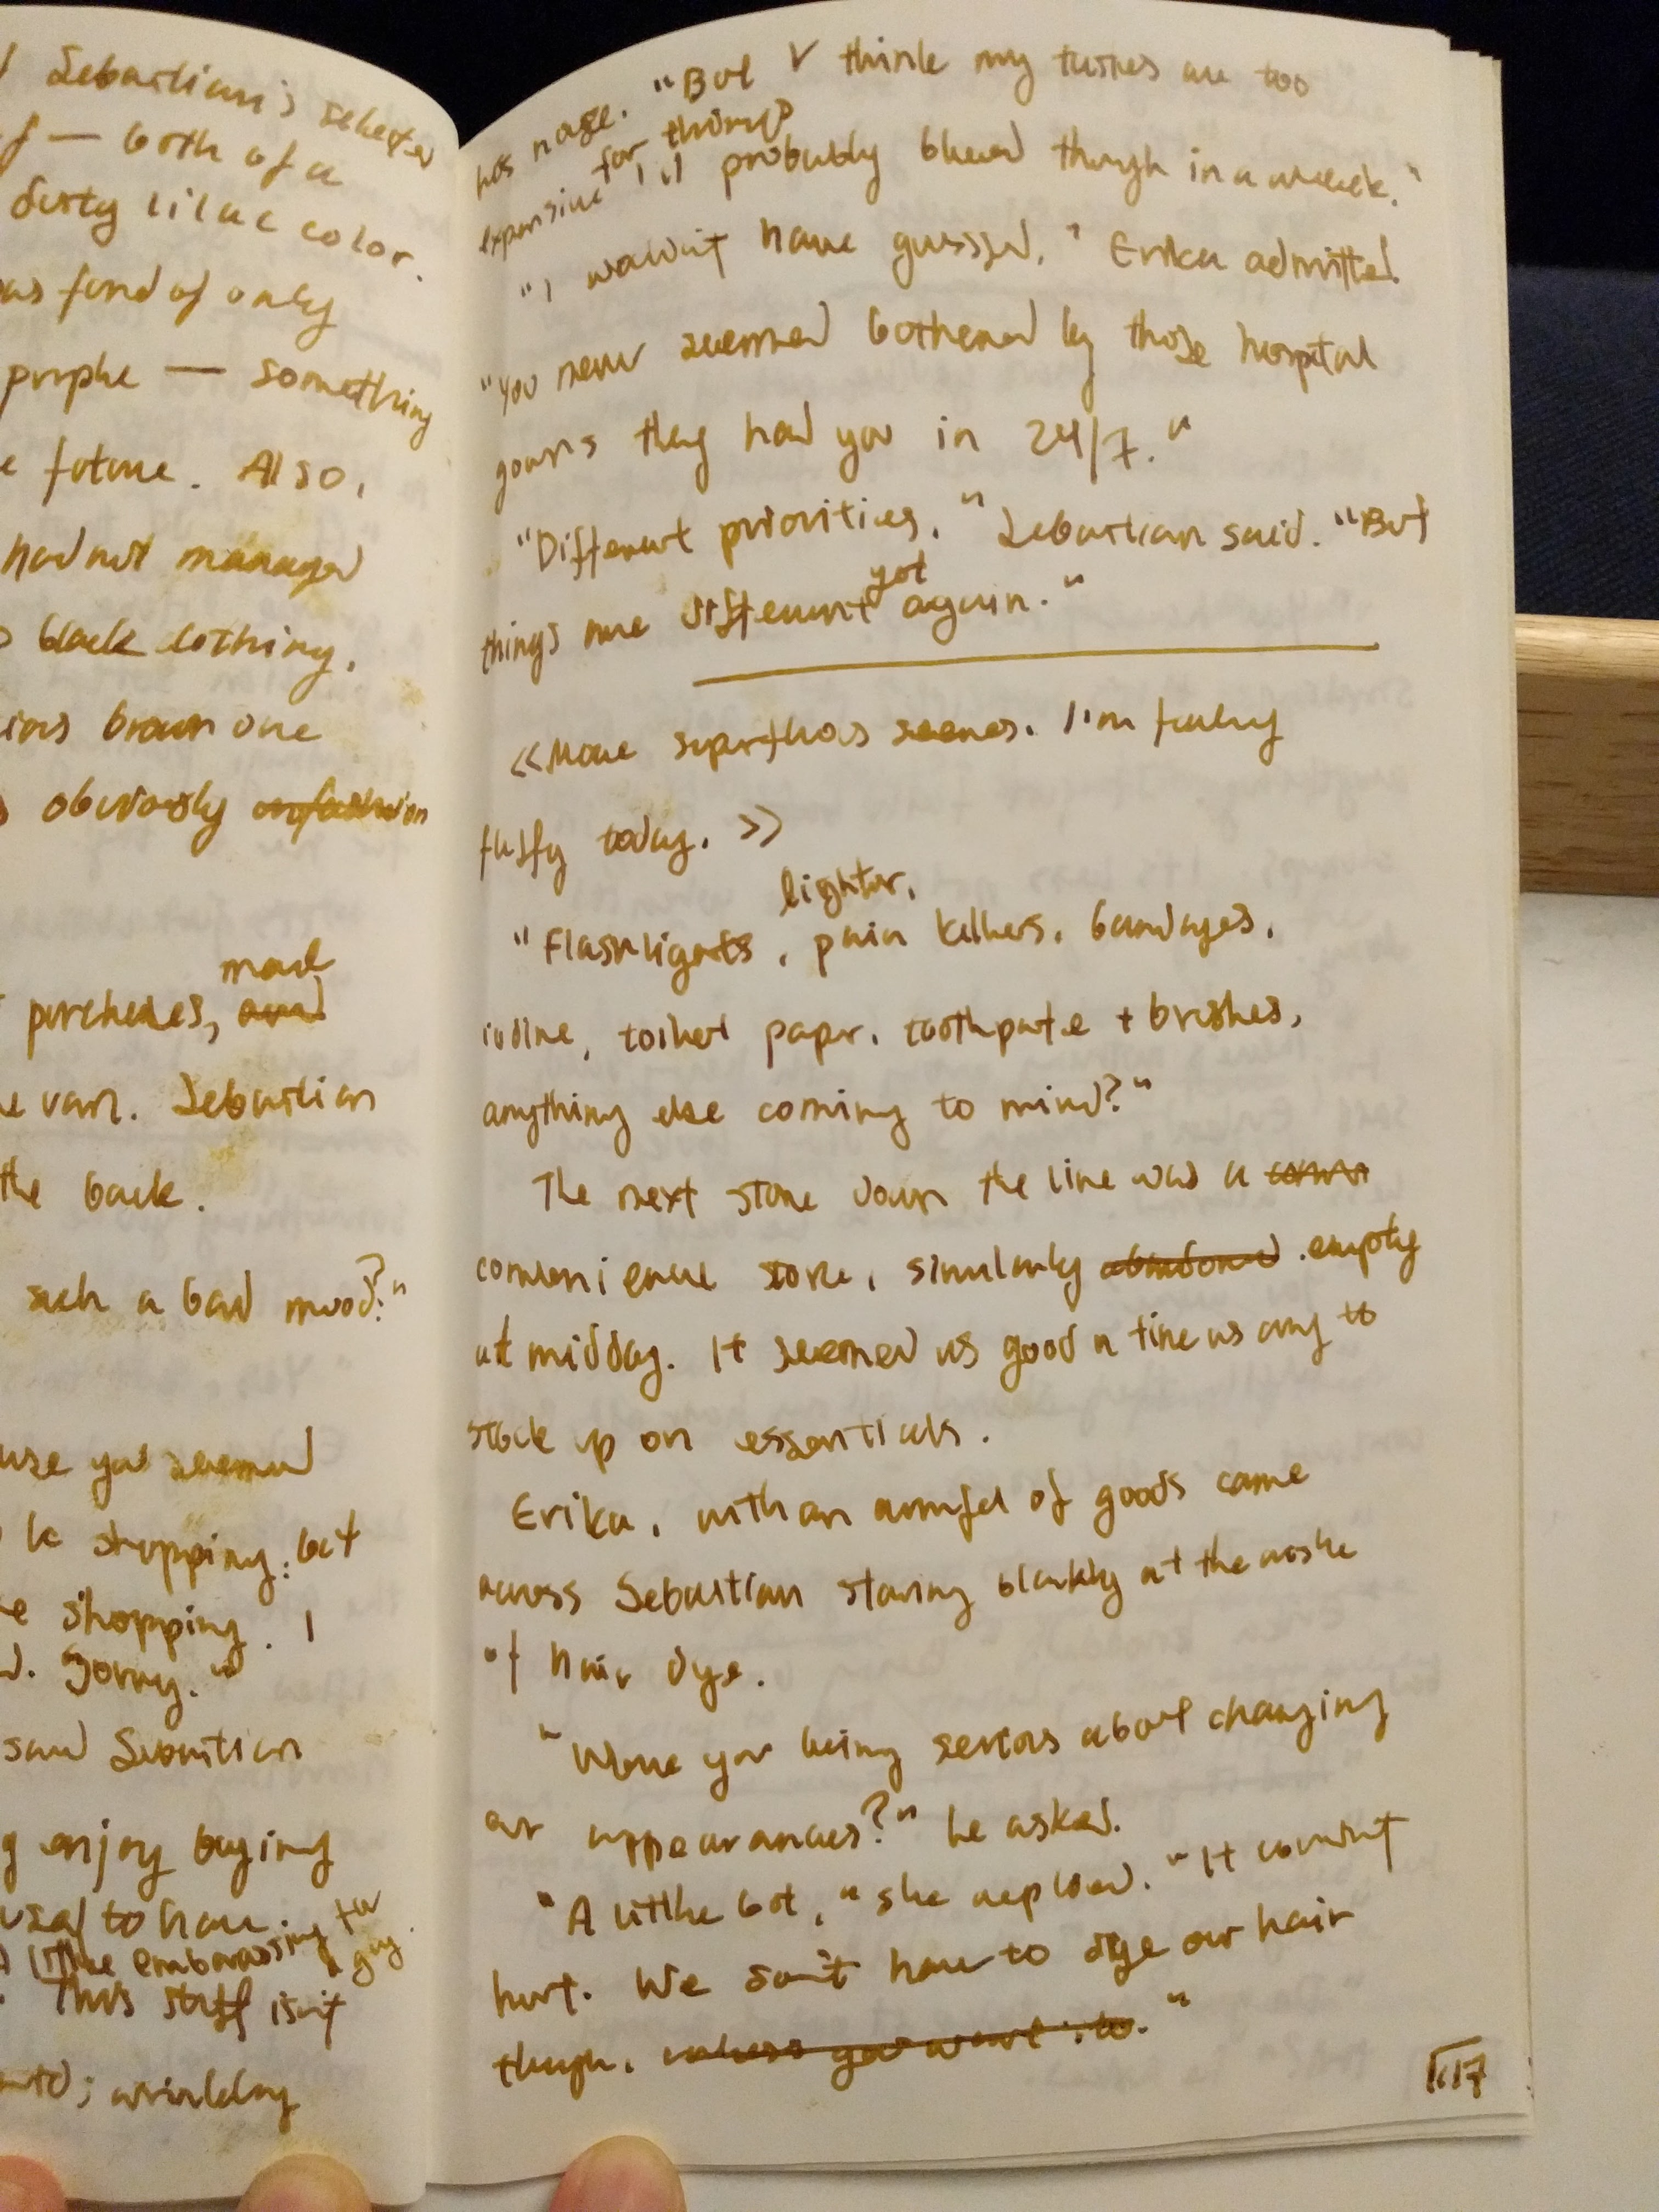 Sebastian's selected
— both of a
dusty lilac color.
as fond of only
purple — something
e future. Also,
had not managed
black clothing,
brown one
obviously
mad
purchases, and
e van. Sebastian
the back.
such a bad mood?"
use you seemed
stopping; but
e shopping. I
d. Sorry."
said Sebastian
g enjoy buying
used to have
a little embarassing for a guy.
. This stuff isn't
; winkling
his nose. "But I think my tastes are too
expensive for things I'd probably bleed through in a week."
"I wouldn't have guessed," Erika admitted.
"You never seemed bothered by those hospital
gowns they had you in 24/7."
"Different priorities," Sebastian said. "But
things are different yet again."
<<More superfluous scenes. I'm feeling
fluffy today. >>
lighter,
"Flashlights, pain killers, bandages,
iodine, toilet paper, toothpaste + brushes,
anything else coming to mind?"
The next store down the line was a
convenience store, similarly abandoned empty
at midday. It seemed as good a time as any to
stock up on essentials.
Erika, with an armful of goods came
across Sebastian staring blankly at the aisle
of hair dye.
"Were you being serious about changing
our appearances?" he asked.
"A little bit," she replied. "It couldn't
hurt. We don't have to dye our hair
though, unless you want to."